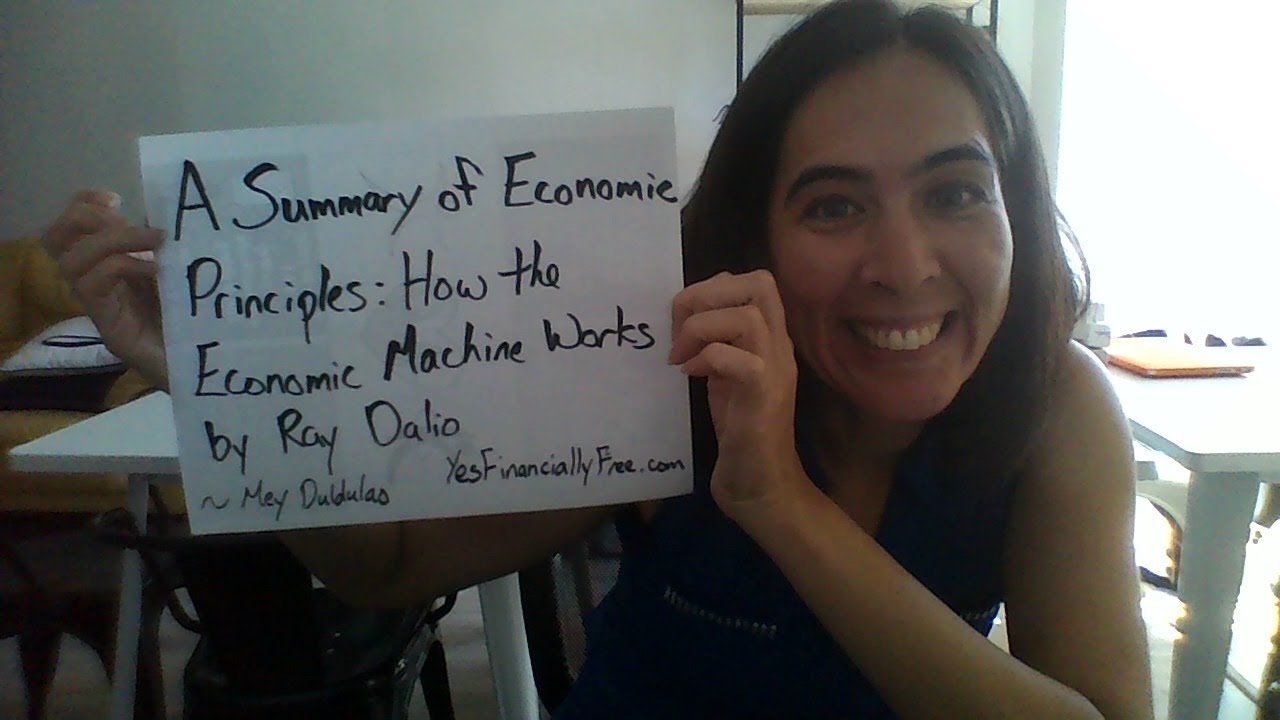 A Summary of Economic
Principles: How the
Economic Machine Works
by Ray Dalio
YesFinanciallyFree.com
~ Mey Duldulao